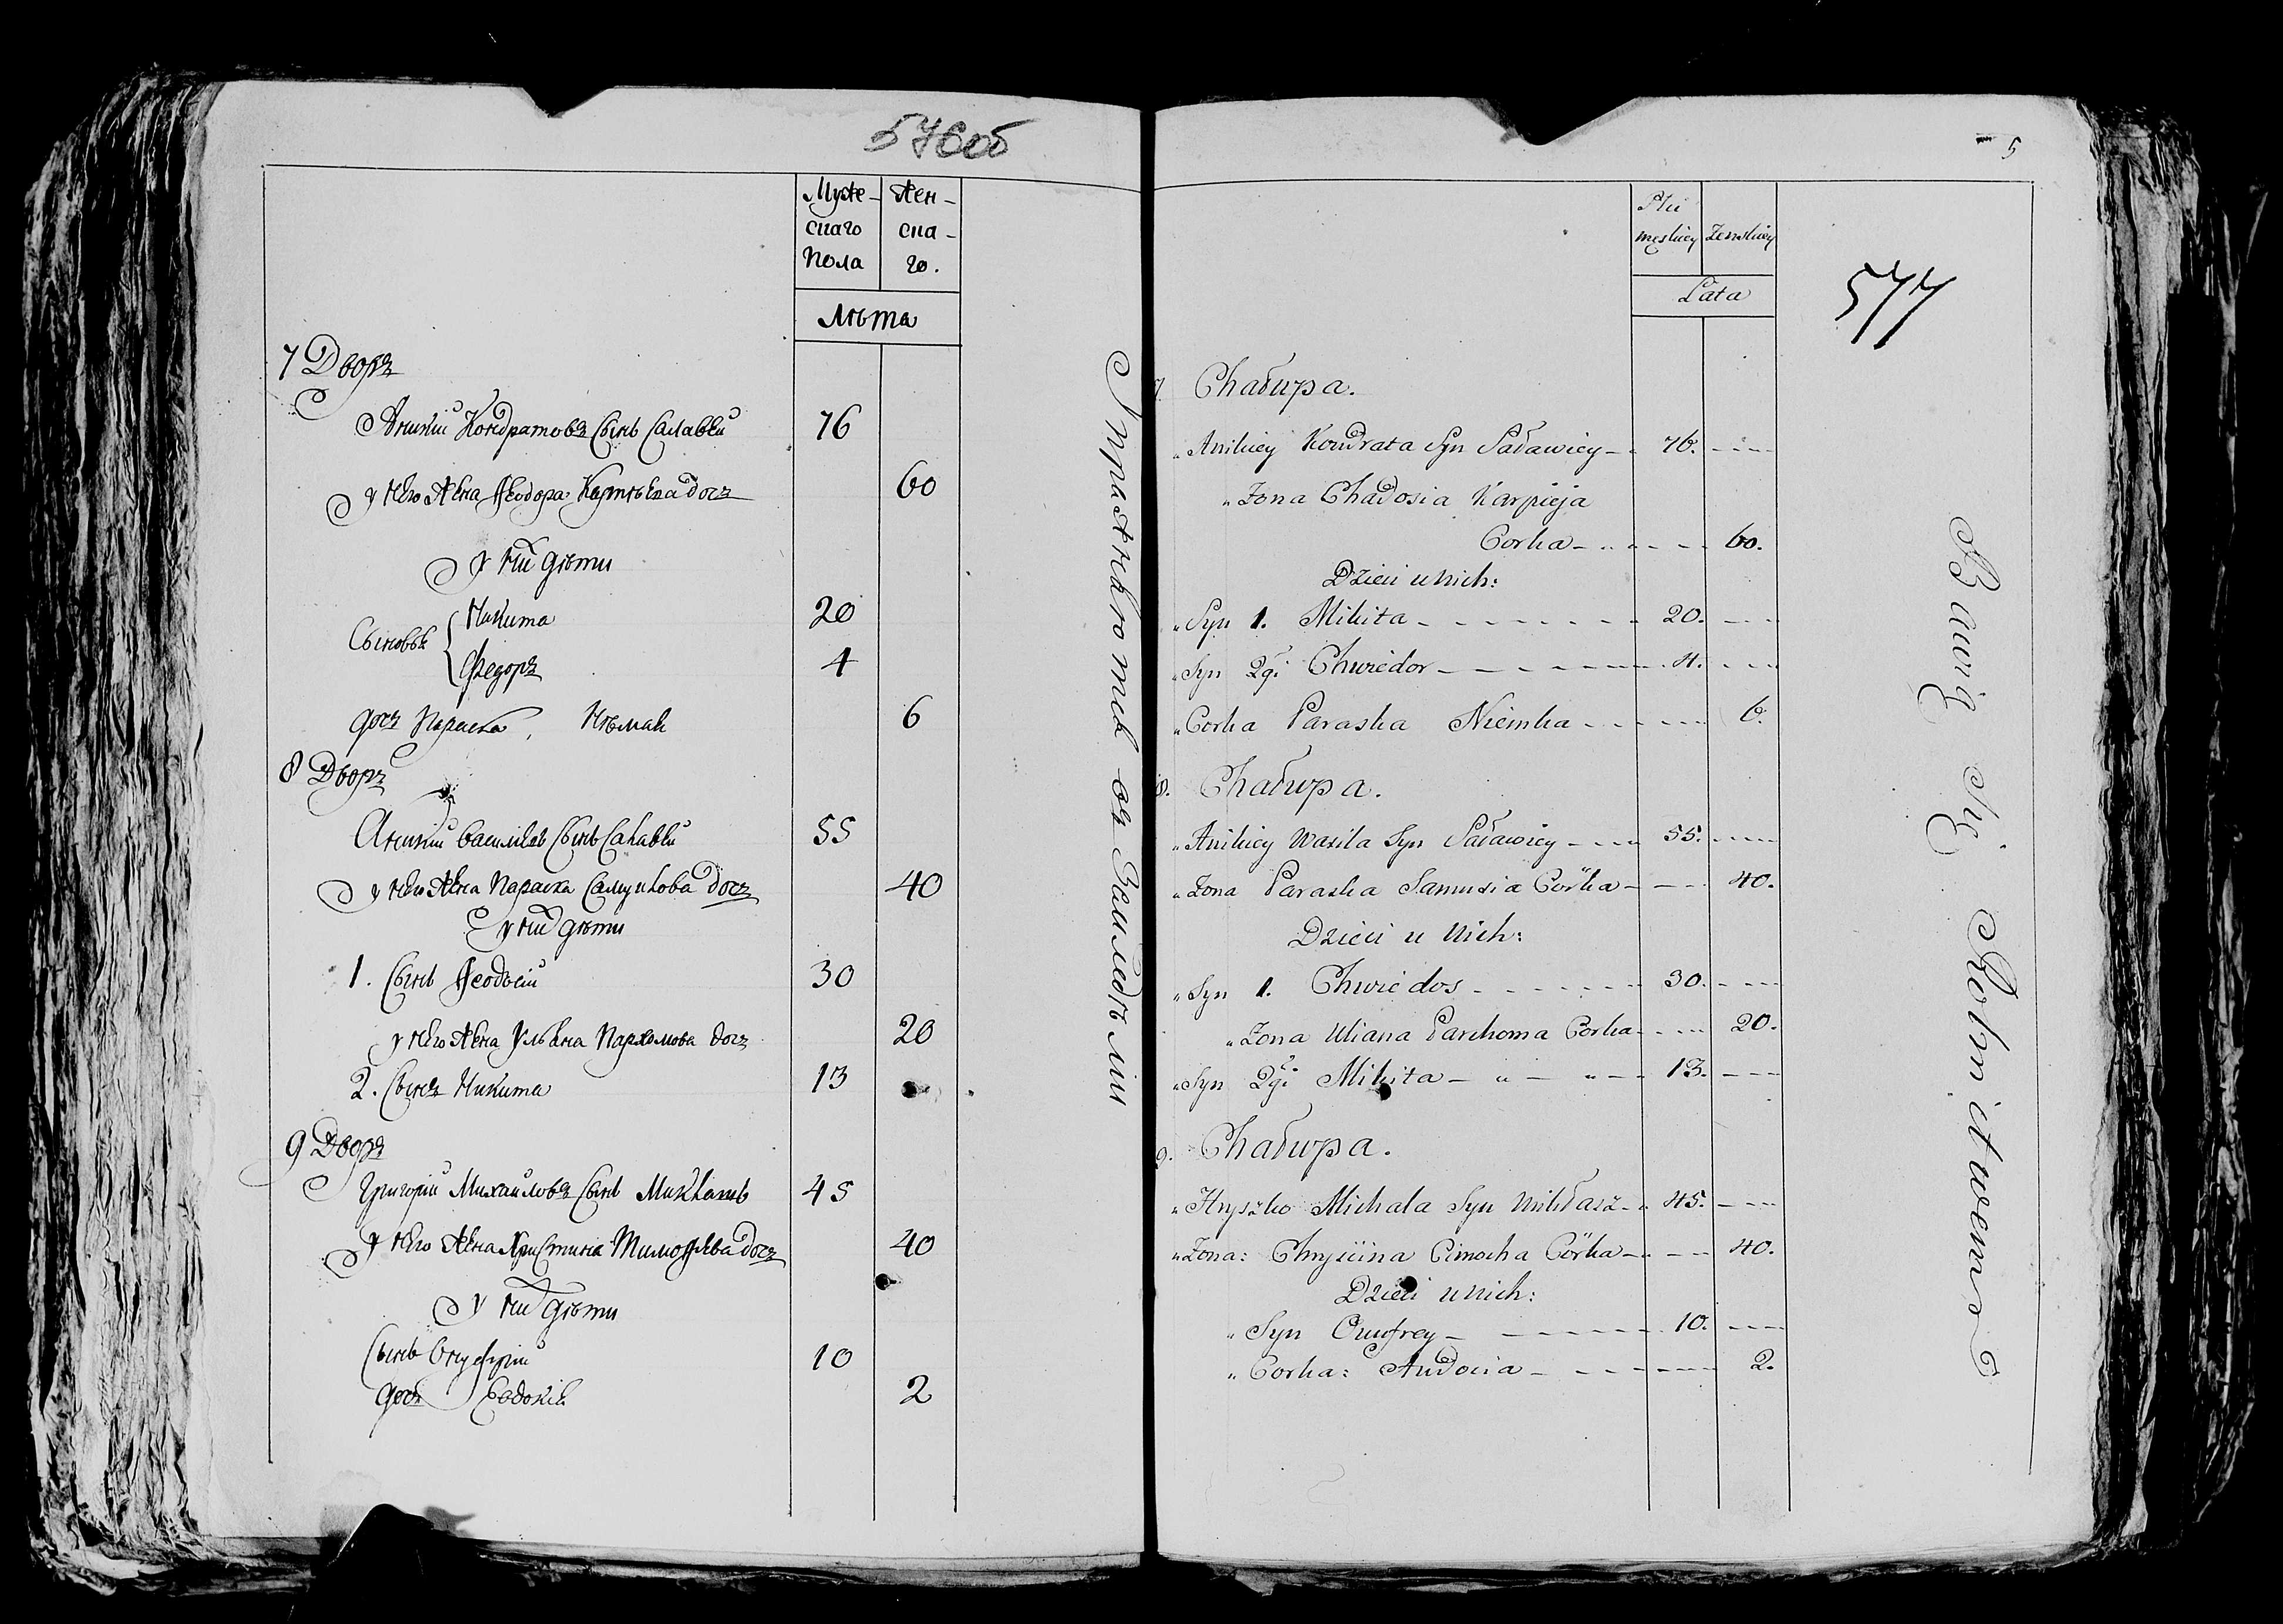 576об
Муже-
скаго
пола
Жен-
ска-
го.
Лѣта
7 Дворъ
Аникій Кондратовъ Сынъ Салавей
76
у него Жена Ѳеодора Карпѣева дочъ
60
у нихъ дѣти
Сыновья
Никита
20
Федоръ
4
дочъ Параска, Нѣмая
6
8 Дворъ
Аникій Василіевъ Сынъ Салавей
55
у него Жена Параска Самуилова дочъ
40
у нихъ дѣти
1. Сынъ Ѳеодосій
30
у него Жена Ульяна Пархомова дочъ
20
2. Сынъ Никита
13
9 Дворъ
Григорій Михайловъ Сынъ Миклашъ
45
у него Жена Христина Тимоѳѣева дочъ
40
у нихъ дѣти
Сынъ Онуфрій
10
дочъ Евдокія
2
Упражняютсѧ въ Земледѣліи
5
577
Płci
męskiey
Żenskiey
Lata
7. Chałupa.
Anikiey Kondrata Syn Saławiey 76.
Żona Chadosia Karpieja
Corka 60.
Dzieci u nich:
Syn 1. Mikita 20.
Syn 2gi Chwiedor 4.
Corka Paraska Niemka 6.
8. Chałupa.
Anikiey Wasila Syn Saławiey 55.
Żona Paraska Samusia Córka 40.
Dzieci u nich:
Syn 1. Chwiedos 30.
Żona Uliana Parchoma Corka 20.
Syn 2gi Mikita 13.
9. Chałupa.
Hryszko Michała Syn Mikłasz 45.
Żona: Chryścina Cimocha Córka 40.
Dzieci u nich:
Syn Onufrey 10.
Corka: Audocia 2.
Bawią Się Rolnictwem